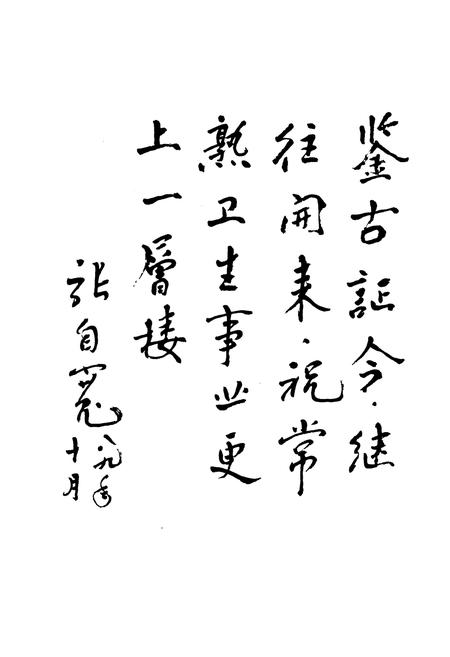 鉴古証今、继
往開来、祝常
熟卫生事业更
上一層楼
张自寛
八九年
十月